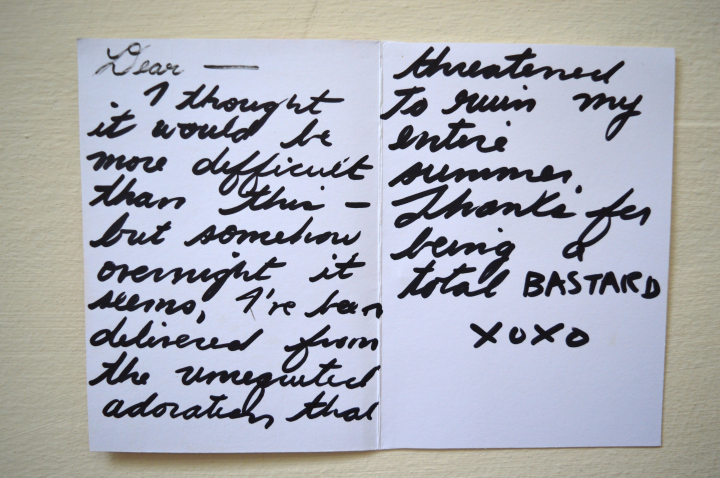 Dear —
I thought
it would be
more difficult
than this —
but somehow
overnight it
seems, I've been
delivered from
the unrequited
adoration that
threatened
to ruin my
entire
summer.
Thanks for
being a
total BASTARD
XOXO